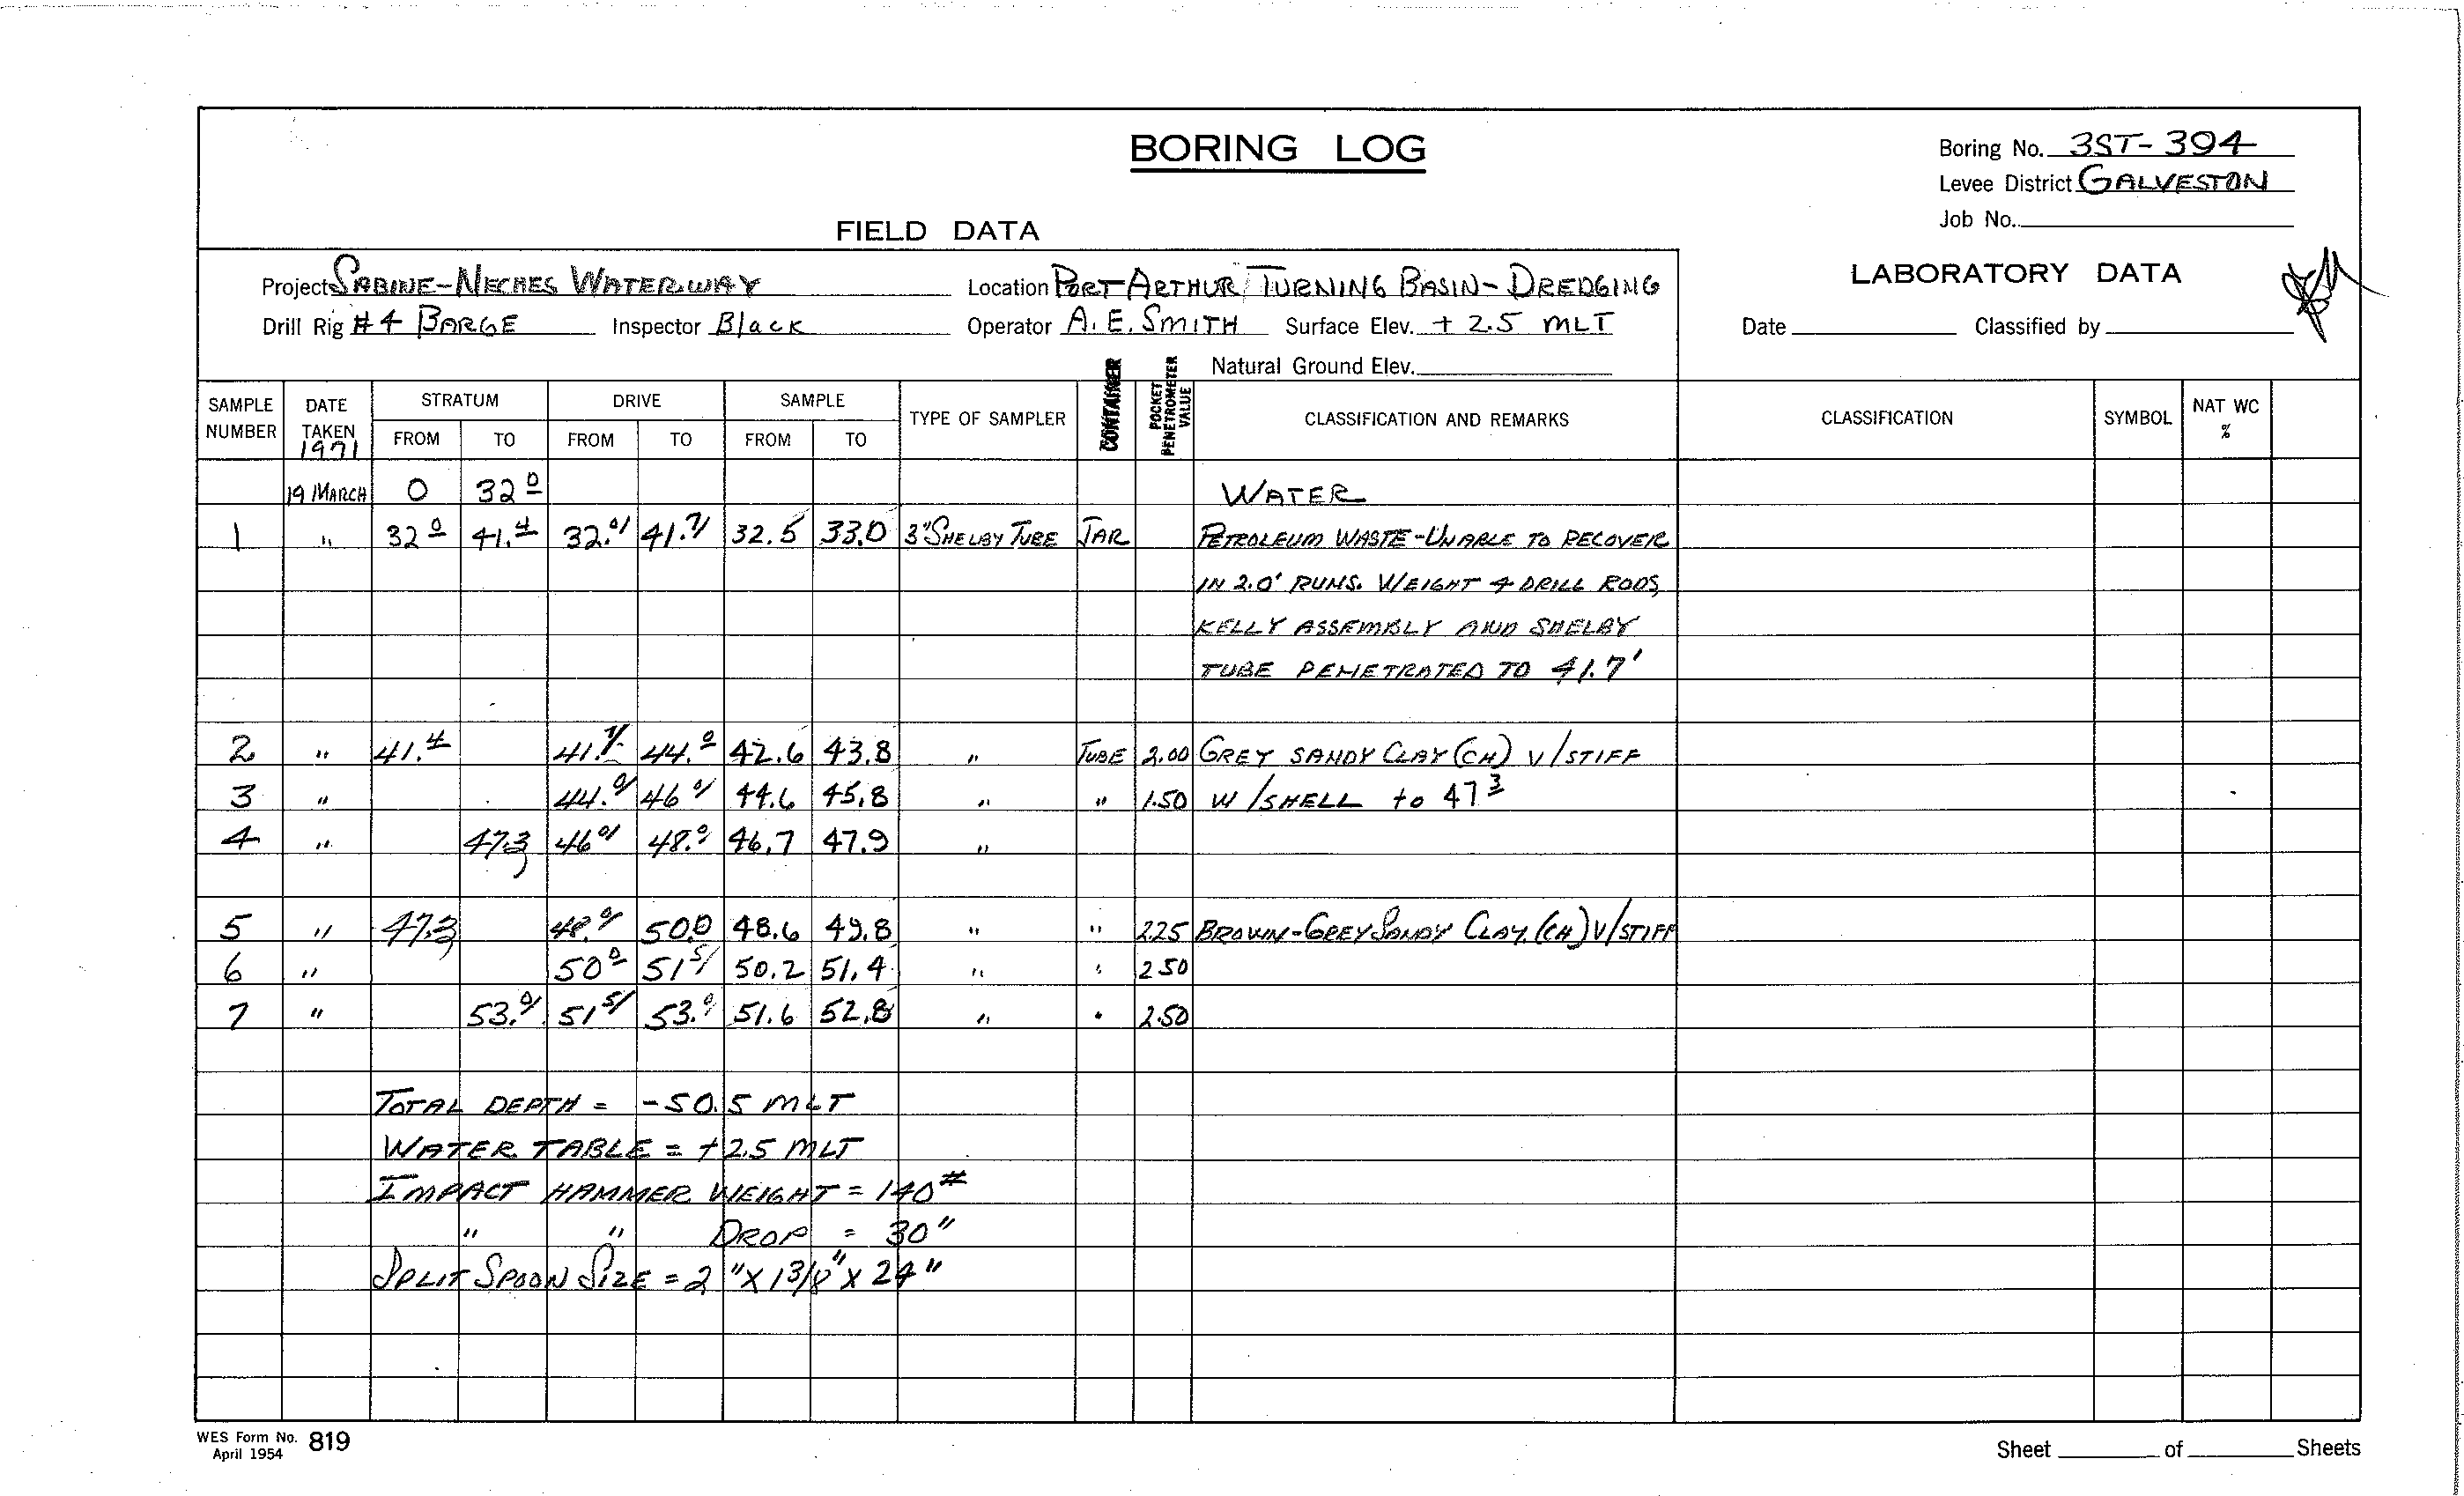 BORING LOG
Boring No. 3ST-394
Levee District GALVESTON
Job No.
FIELD DATA
LABORATORY DATA
Project SABINE-NECHES WATERWAY Location PORT ARTHUR TURNING BASIN-DREDGING
Drill Rig #4 BARGE Inspector Black Operator A. E. SMITH Surface Elev. + 2.5 MLT Date Classified by
Natural Ground Elev.
SAMPLE NUMBER DATE TAKEN 1971 STRATUM FROM TO DRIVE FROM TO SAMPLE FROM TO TYPE OF SAMPLER CONTAINER POCKET PENETROMETER VALUE CLASSIFICATION AND REMARKS CLASSIFICATION SYMBOL NAT WC %
19 MARCH 0 32 0 WATER
1 " 32 0 41.4 32.0 41.7 32.5 33.0 3" SHELBY TUBE JAR PETROLEUM WASTE-UNABLE TO RECOVER
IN 2.0' RUNS. WEIGHT 4 DRILL RODS,
KELLY ASSEMBLY AND SHELBY
TUBE PENETRATED TO 41.7'
2 " 41.4 41.7 44.0 42.6 43.8 " TUBE 2.00 GREY SANDY CLAY (CH) V/STIFF
3 " 44.0 46 0 44.6 45.8 " " 1.50 W/SHELL to 47 3
4 " 47.3 46 0 48.0 46.7 47.9 "
5 " 47.3 48.0 50.0 48.6 49.8 " " 2.25 BROWN-GREY SANDY CLAY. (CH) V/STIFF
6 " 50 0 51 5 50.2 51.4 " " 2 50
7 " 53.0 51 5 53.0 51.6 52.8 " " 2.50
TOTAL DEPTH = -50.5 MLT
WATER TABLE = +2.5 MLT
IMPACT HAMMER WEIGHT = 140#
" " DROP = 30"
SPLIT SPOON SIZE = 2" X 1 3/8" X 24"
WES Form No. 819
April 1954
Sheet of Sheets